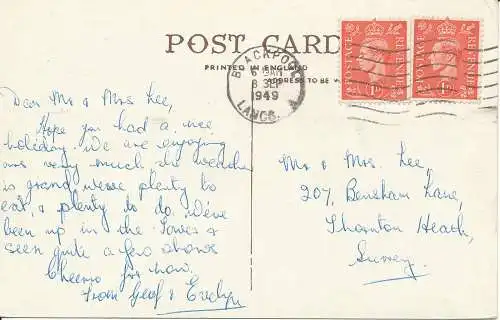 POST CARD
PRINTED IN ENGLAND
ADDRESS TO BE
BLACKPOOL
8 SEP
1949
LANCS. A
POSTAGE REVENUE
1D
POSTAGE REVENUE
1D
Dear Mr & Mrs Lee,
Hope you had a nice
holiday. We are enjoying
ours very much the weather
is grand we've plenty to
eat, & plenty to do. We've
been up in the Tower &
seen quite a few shows
Cheerio for now.
From Geof & Evelyn
Mr & Mrs Lee,
207, Bensham Lane,
Thornton Heath,
Surrey.